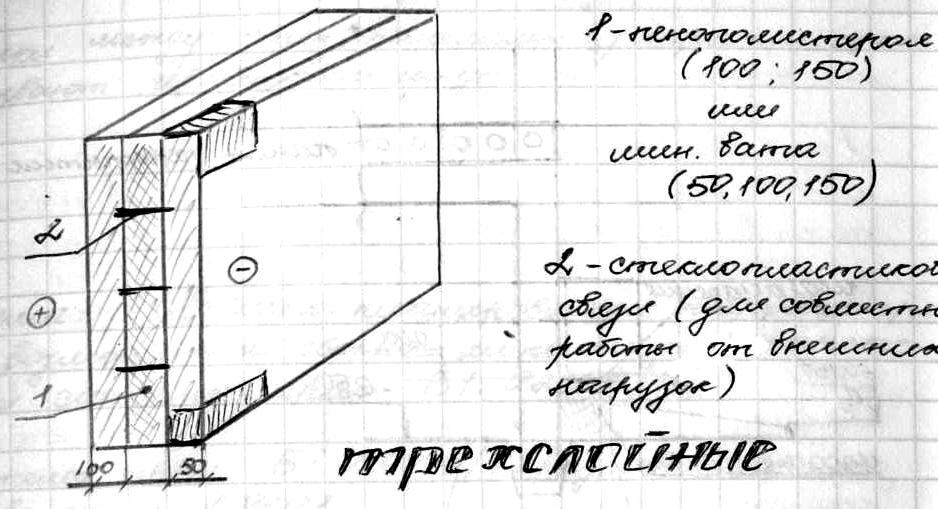 1 - пенополистерол
(100; 150)
или
мин. вата
(50, 100, 150)
2 - стеклопластиков
связи (для совместн
работы от внешних
нагрузок)
2
+
-
1
100
50
трехслойные